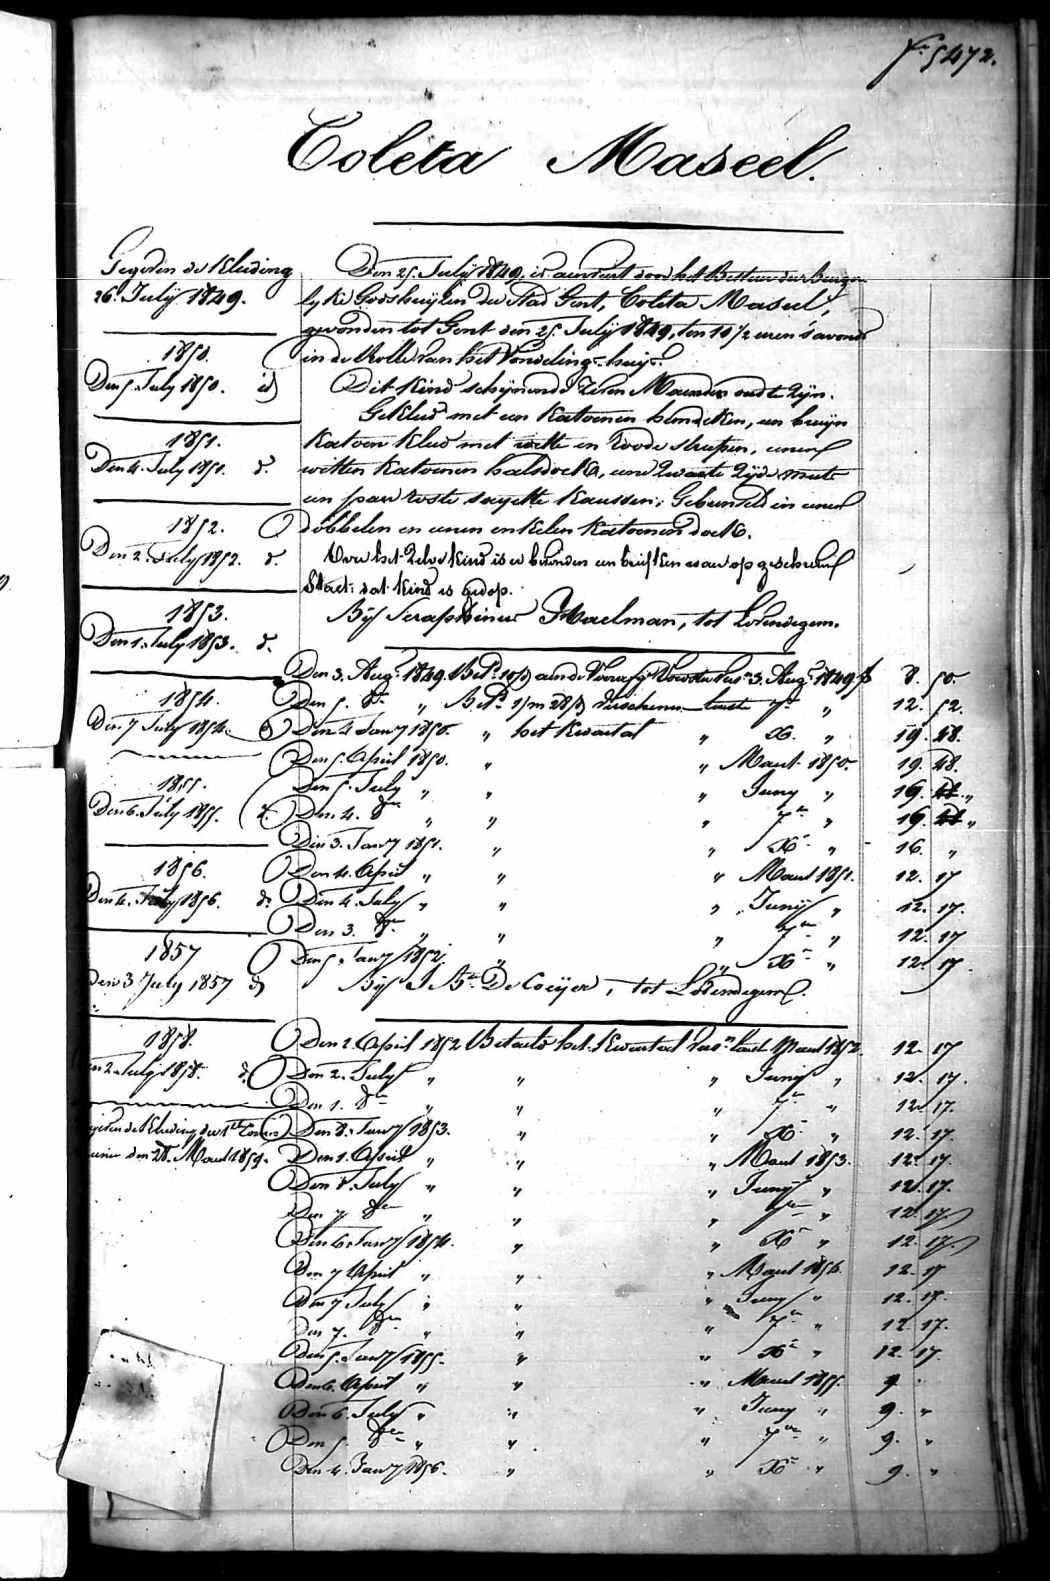 f° 5472.
Coleta Maseel.
Gegeven de Kleeding
26. July 1849.
1850.
Den 5. July 1850. id
1851.
Den 4. July 1851. d°.
1852.
Den 2. July 1852. d°.
1853.
Den 1. July 1853. d°.
1854.
Den 7 July 1854.
1855.
Den 6. July 1855. d°.
1856.
Den 4. July 1856. d°
1857
Den 3 July 1857 d°
1858.
en 2. July 1858. d°.
geven de Kleeding der 1ste
den 28. Maert 1859.
Den 25. July 1849, is aenveert door het Bestuer der Burger-
lyke Godshuyzen der Stad Gent, Coleta Maseel,
gevonden tot Gent den 25. July 1849, ten 10 1/2 uren s'avonds
in de Rolle van het Vondeling-huys.
Dit kind schynende zeven Maenden oudt te zyn.
Gekleed met een katoenen hemdeken, een bruyn
katoen kleed met witte en roode streepen, eenen
witten katoenen halsdoek, eene zwarte zyde muts
een paer roste sayette kaussen; Gebunseld in eenen
dobbelen en eenen enkelen katoenen doek.
Over het zelve kind is er bevonden een briefken waer op geschreven
Staet: dat kind is gedop.
By Seraphiene Haelman, tot Lovendegem.
Den 3. Aug. 1849. Bet. 3. Aug. 1849 f 8. 50.
Den 5. d° " verschenen laest 7bre " 12. 52.
Den 4 Janry 1850. " het kwartal " Xbr. " 19. 48.
Den 5. April 1850. " " Maert 1850. 19. 48.
Den 5. July " " " Juny " 19. 48 "
Den 4. 8bre " " " 7bre " 19. 48 "
Den 3. Janry 1851. " " Xbr " 16. "
Den 4. April " " " Maert 1851. 12. 17
Den 4. July " " " Juny " 12. 17.
Den 3. 8bre " " " 7bre " 12. 17
Den 5. Janry 1852. " " Xbr " 12. 17.
By J Bte De Coeijer, tot Lovendegem.
Den 2. April 1852 Betaeld het kwartael versn laest Maert 1852. 12. 17
Den 2. July " " " Juny " 12. 17.
Den 1. 8bre " " " 7bre " 12. 17.
Den 8. Janry 1853. " " Xbr " 12. 17.
Den 1. April " " " Maert 1853. 12. 17.
Den 8. July " " " Juny " 12. 17.
Den 7 8bre " " " 7bre " 12. 17
Den 6. Janry 1854. " " Xbr " 12. 17.
Den 7 April " " " Maert 1854. 12. 17
Den 7 July " " " Juny " 12. 17.
Den 7. 8bre " " " 7bre " 12 17.
Den 5. Janry 1855. " " Xbr " 12. 17.
Den 6. April " " " Maert 1855. 9 "
Den 6. July " " " Juny " 9. "
Den 5. 8bre " " " 7bre " 9. "
Den 4. Janry 1856. " " Xbr " 9. "